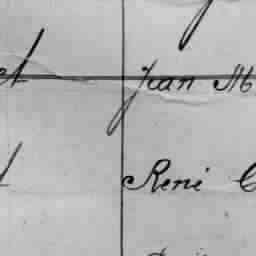 et Jean M
René C